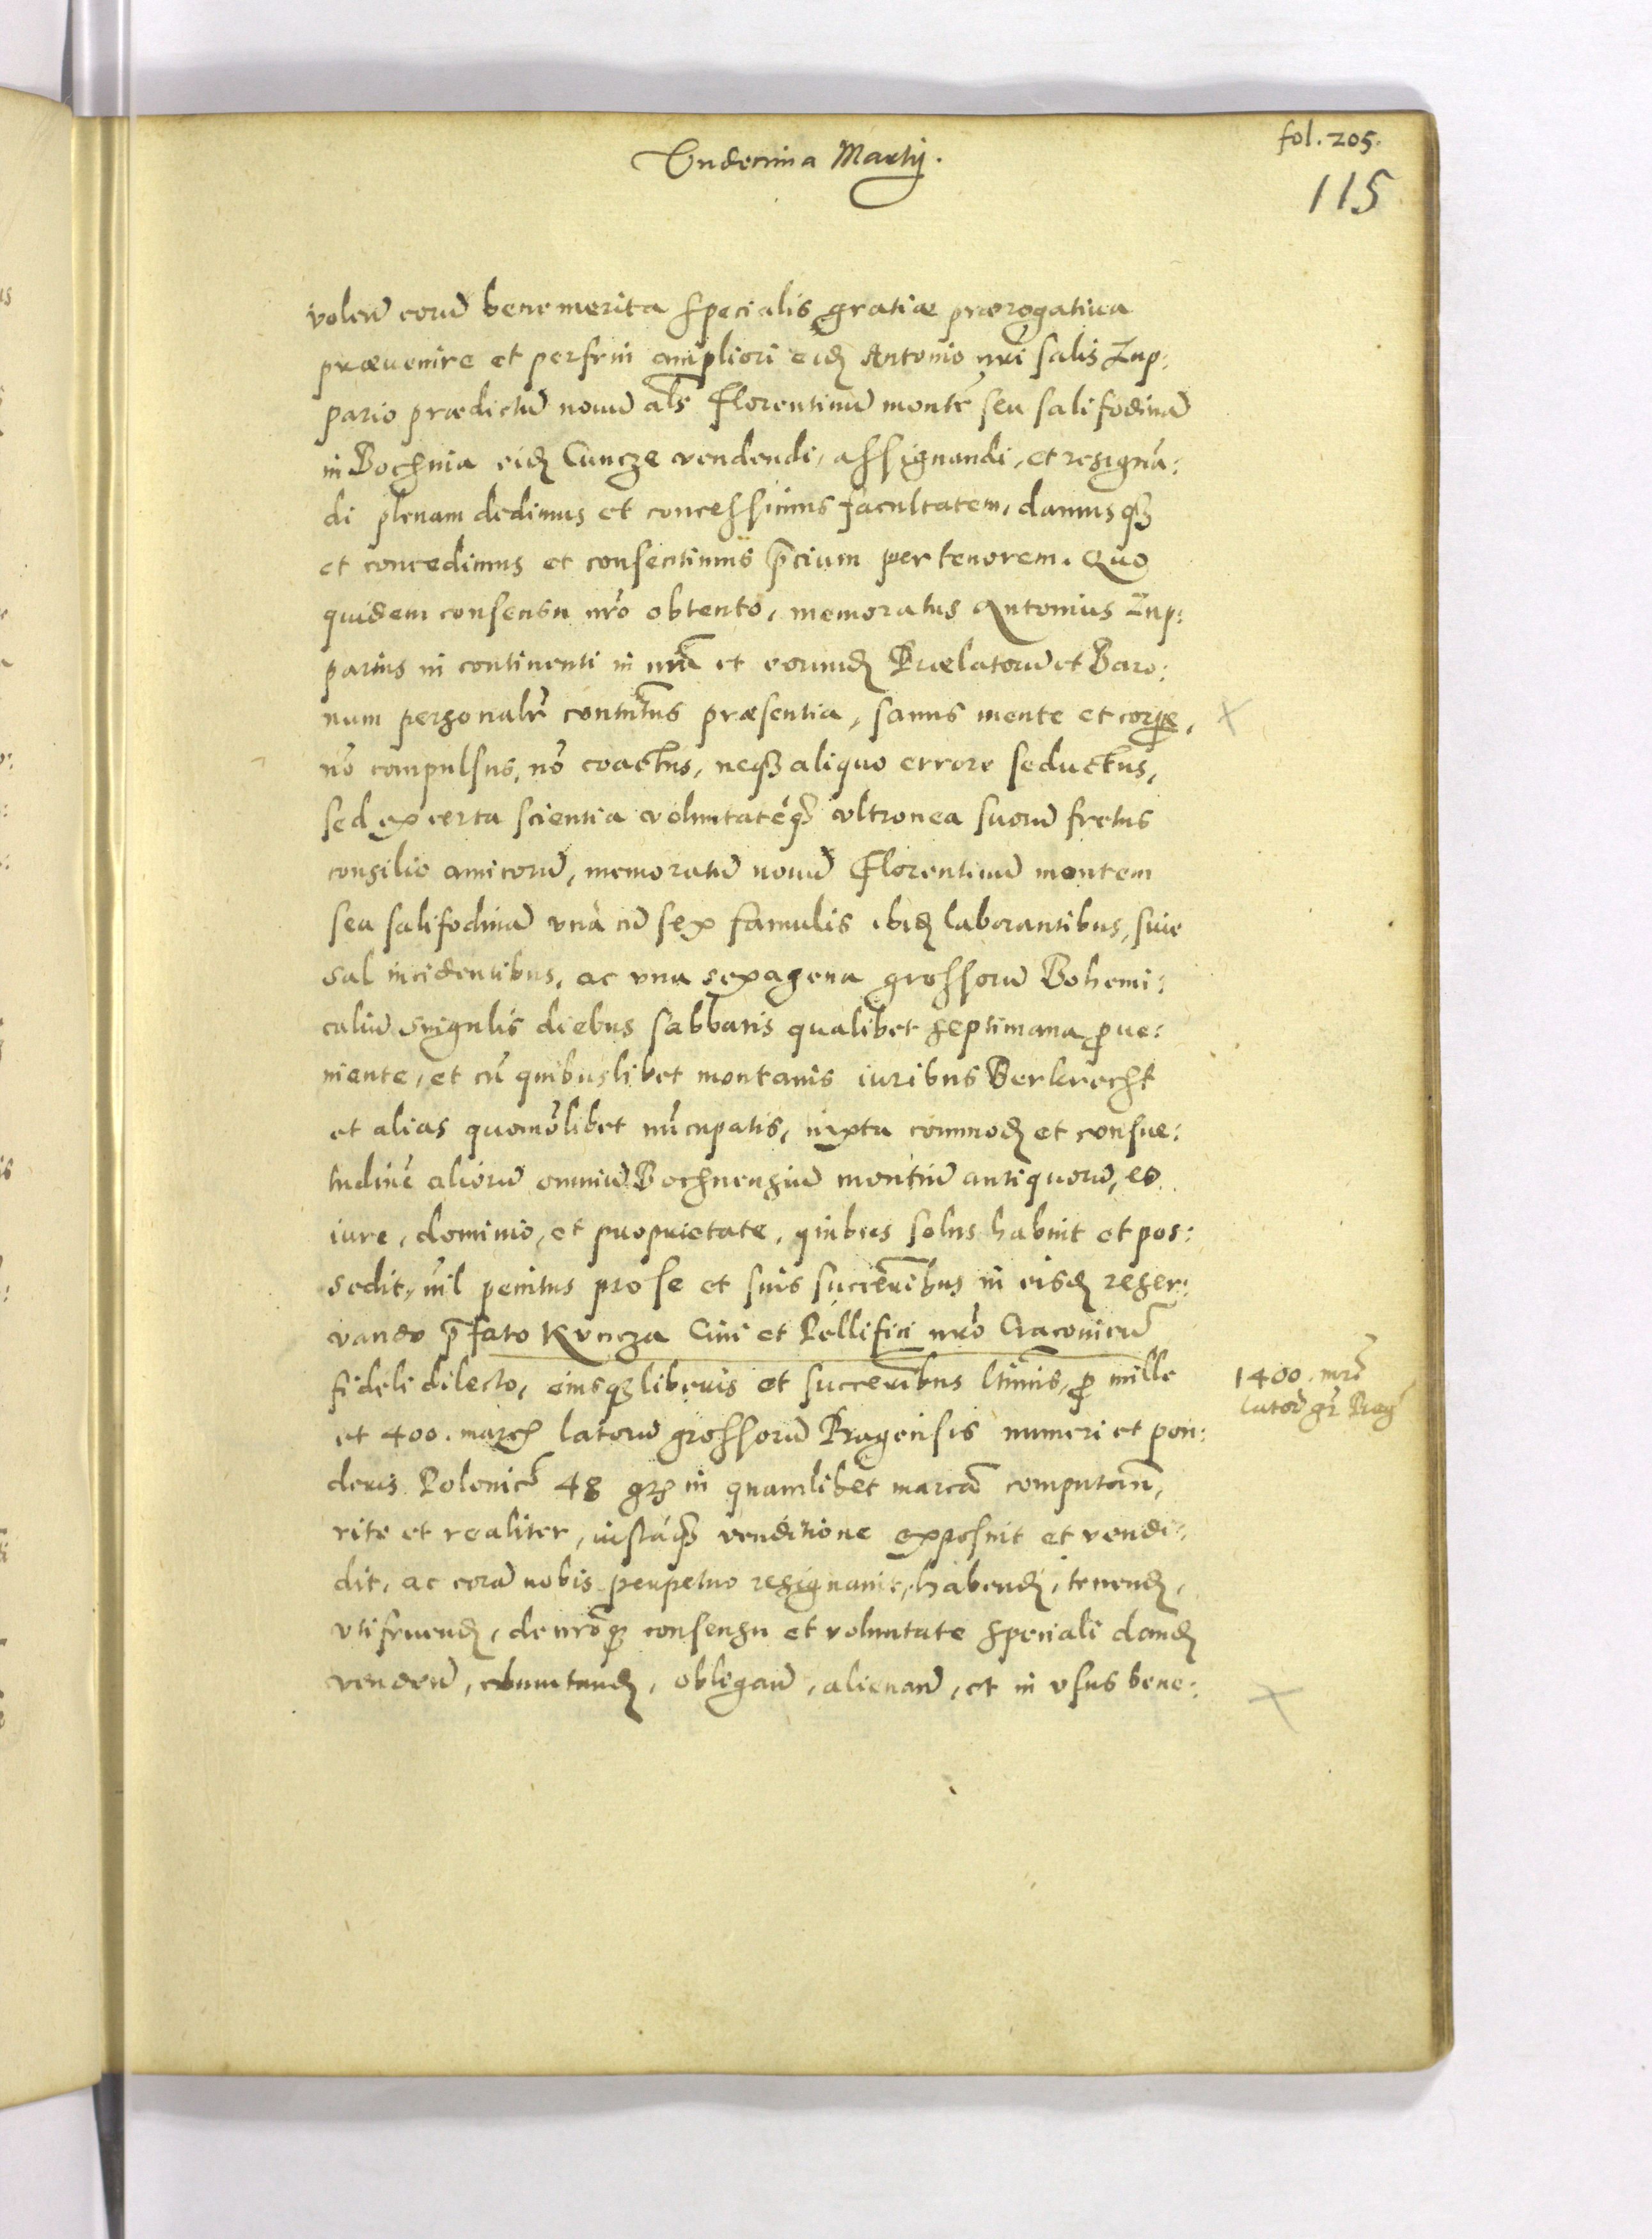 Vndecima Martij.
fol. 205.
115
volen̄ eorū benemerita specialis gratiæ prærogatiua
præuenire et perfrui ampliori eidȝ Antonio nr̄i salis Zup:
pario prædictū nouū als̄ Florentinū montē seu salifodinā
in Bochnia eidȝ Cuncze vendendi, assignandi, et resignā:
di plenam dedimus et concessimus facultatem, damusqȝ
et concedimus et consentimus p̄ntium per tenorem. Quo
quidem consensu nr̄o obtento, memoratus Antonius Zup:
parius in continenti in nr̄a et eorundȝ Prælatorū et Baro:
num personalr̄ constitutus præsentia, sanus mente et corpe,
nō compulsus, nō coactus, neqȝ aliquo errore seductus,
sed ex certa scientia voluntatéqȝ vltronea suorū fretus
consilio amicorū, memoratū nouū Florentinū montem
seu salifodinā vnà cū sex famulis ibidȝ laborantibus, siue
sal incidentibus, ac vna sexagena grossorū Bohemi:
caliū singulis diebus sabbatis qualibet septimana proue:
niente, et cū quibuslibet montanis iuribus Berkrecht
et alias quomōlibet nūcupatis, iuxta commodȝ et consue:
tudinē aliorū omniū Bochnensiū montiū antiquorū, eo
iure, dominio, et proprietate, quibus solus habuit et pos:
sedit, nīl penitus pro se et suis successoribus in eisdȝ reser:
vando p̄fato Kuncza Ciui et Pellifici nr̄o Cracouien̄
fideli dilecto, eiusqȝ liberis et successoribus ltīmis, pro mille
et 400. marcȝ latorū grossorū Pragensis numeri et pon:
deris Polonicȝ 48 grȝ in quamlibet marcā computan̄,
rite et realiter, iustáqȝ venditione exposuit et vendi:
dit, ac corā nobis perpetuo resignauit, habendȝ, tenendȝ,
vtifruendȝ, de nr̄oqȝ consensu et voluntate speciali dandȝ
venden̄, cōmutandȝ, obligan̄, alienan̄, et in vsus bene:
1400. mr̄
lator̄ gr̄ Prag